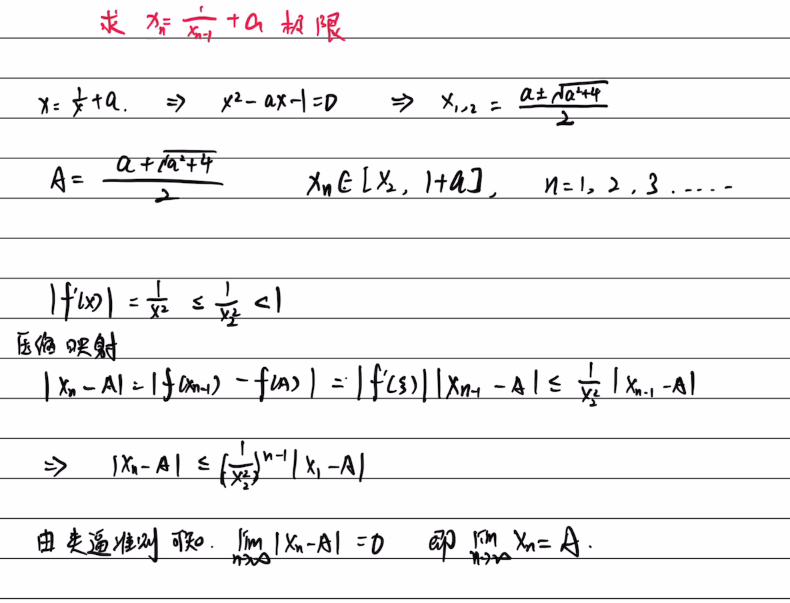 求 xₙ = 1/xₙ₋₁ + a 极限
x = 1/x + a. ⇒ x² - ax - 1 = 0 ⇒ x₁,₂ = (a ± √(a²+4))/2
A = (a + √(a²+4))/2 xₙ ∈ [x₂, 1+a], n = 1, 2, 3 ......
|f'(x)| = 1/x² ≤ 1/x₂² < 1
压缩映射
|xₙ - A| = |f(xₙ₋₁) - f(A)| = |f'(ξ)||xₙ₋₁ - A| ≤ 1/x₂² |xₙ₋₁ - A|
⇒ |xₙ - A| ≤ (1/x₂²)ⁿ⁻¹ |x₁ - A|
由夹逼准则可知. lim n→∞ |xₙ - A| = 0 即 lim n→∞ xₙ = A.